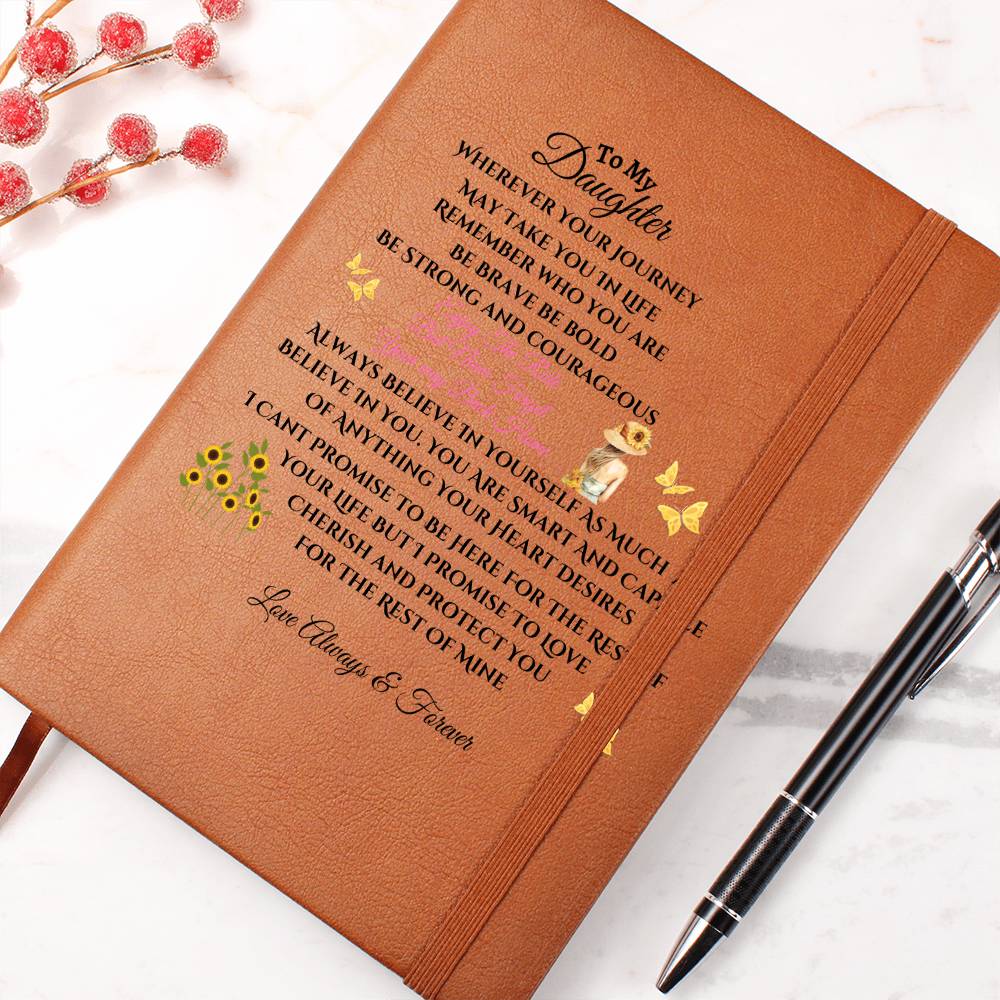 To My
Daughter
Wherever Your Journey
May Take You In Life
Remember Who You Are
Be Brave Be Bold
Be Strong And Courageous
Enjoy The Ride
And Never Forget
Your way Back Home
Always Believe In Yourself As Much
Believe In You. You Are Smart And
Of Anything Your Heart Desires
I Cant Promise To Be Here For The Rest
Your Life But I Promise To Love
Cherish and Protect You
For The Rest Of Mine
Love Always & Forever